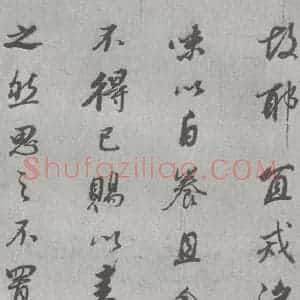 故耶直戒
味以自養且
不得已賜以書
之然思之不置
Shufaziliao.COM